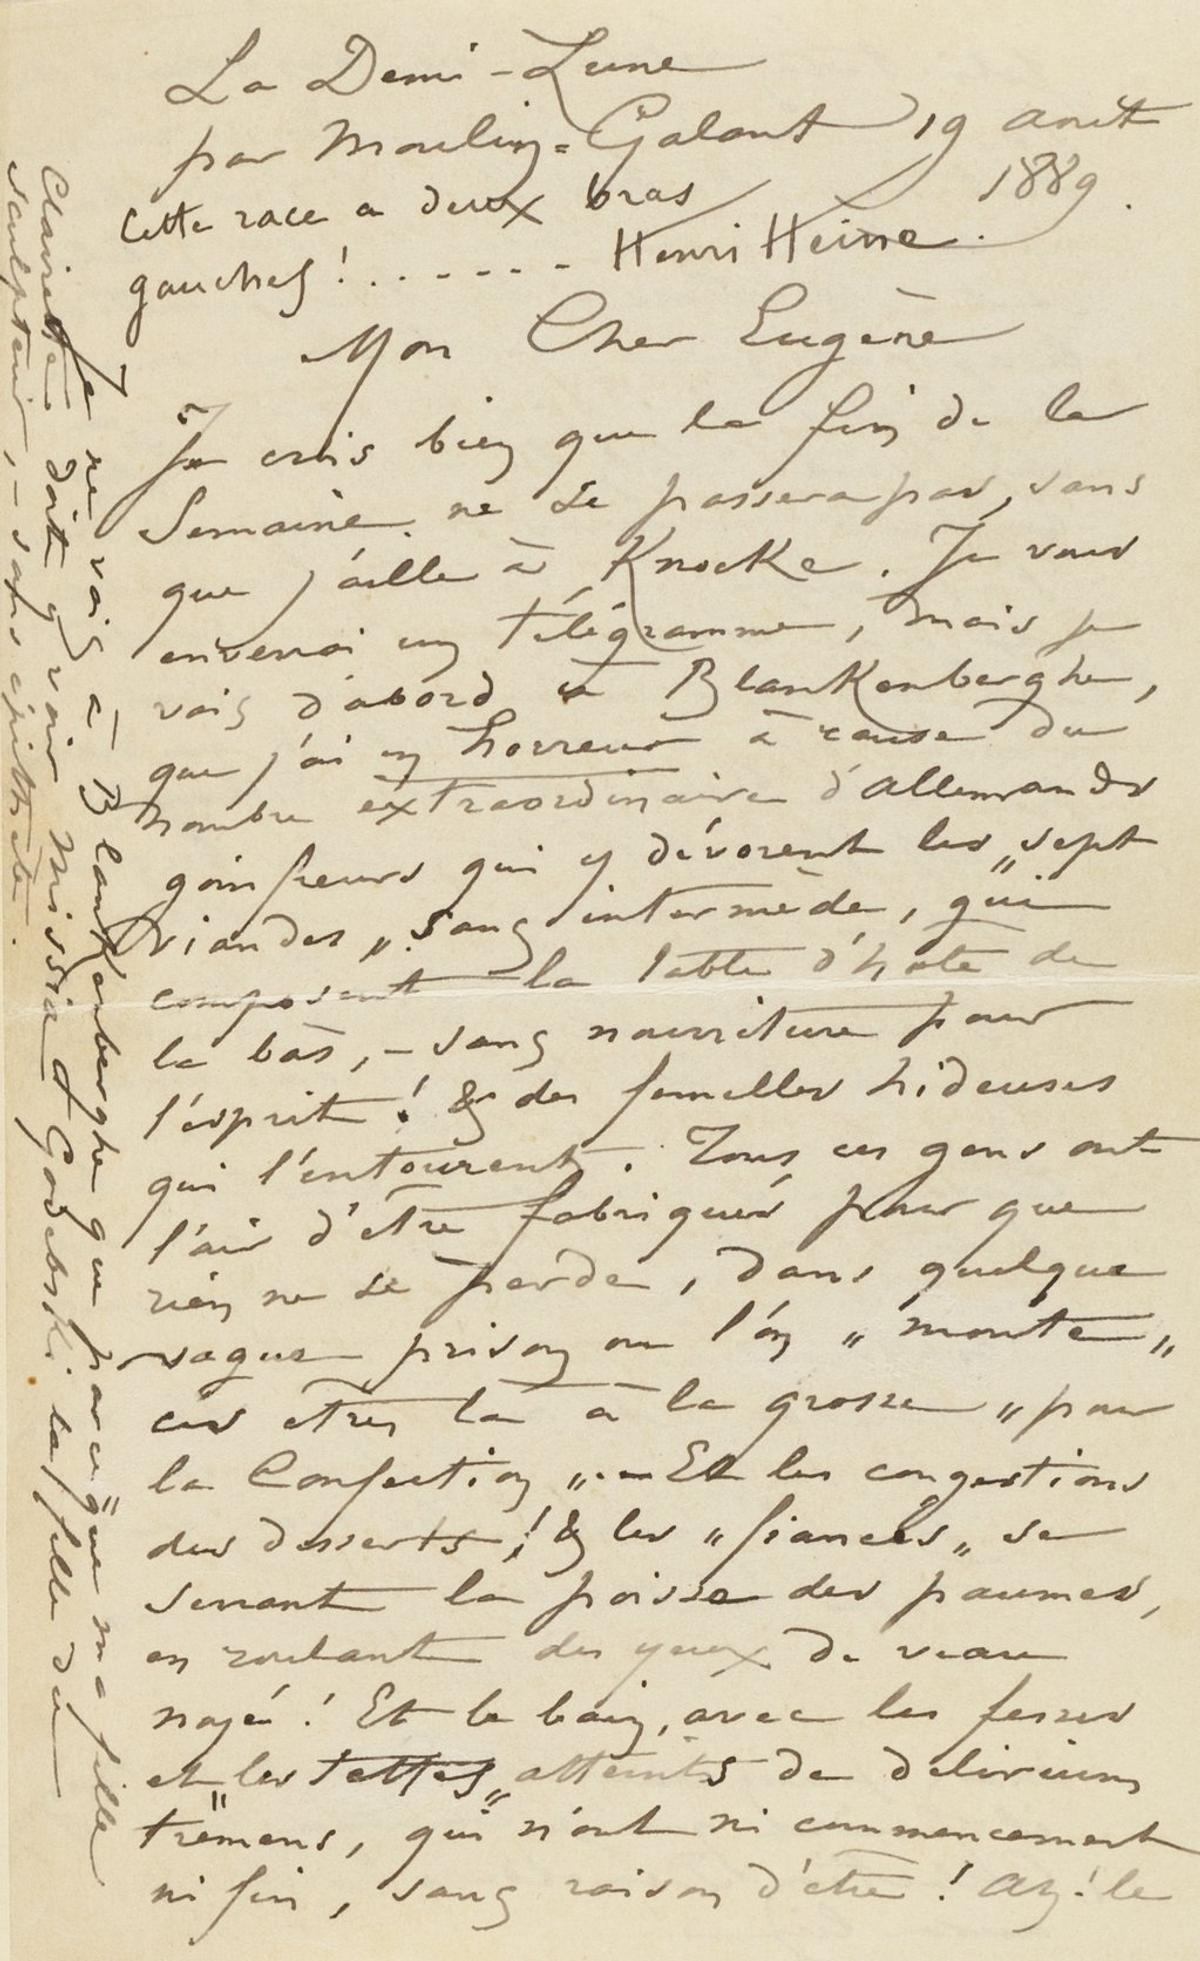 La Demi-Lune
par Moulin-Galant 19 août
1889.
Cette race a deux bras
gauches ! . . - - - - Henri Heine.
Mon Cher Eugène
Je crois bien que la fin de la
Semaine ne se passera pas, sans
que j'aille à Knocke. Je vous
enverrai un télégramme, mais je
vais d'abord à Blankenberghe,
que j'ai en horreur à cause du
nombre extraordinaire d'allemands
goinfreurs qui y dévorent les „sept
viandes„ sans intermède, qui
composent la table d'hote de
là bas, – sans nourriture pour
l'esprit ! & des femelles hideuses
qui l'entourent. Tous ces gens ont
l'air d'être fabriqués pour que
rien ne se perde, dans quelque
vague prison ou l'on „monte„
ces êtres là à la grosse „pour
la Confection„. – Et les congestions
des desserts ! & les „fiancés„ se
serrant la poisse des paumes,
en roulant des yeux de veau
noyé ! Et le bain, avec les fesses
et les „tettes„ atteints de delirium
tremens, qui n'ont ni commencement
ni fin, sans raison d'être ! Ah ! le
Je ne vais à Blankenberghe que parceque ma fille
Claire doit y voir Missia Godebski. la fille du
sculpteur, – sans épithète.